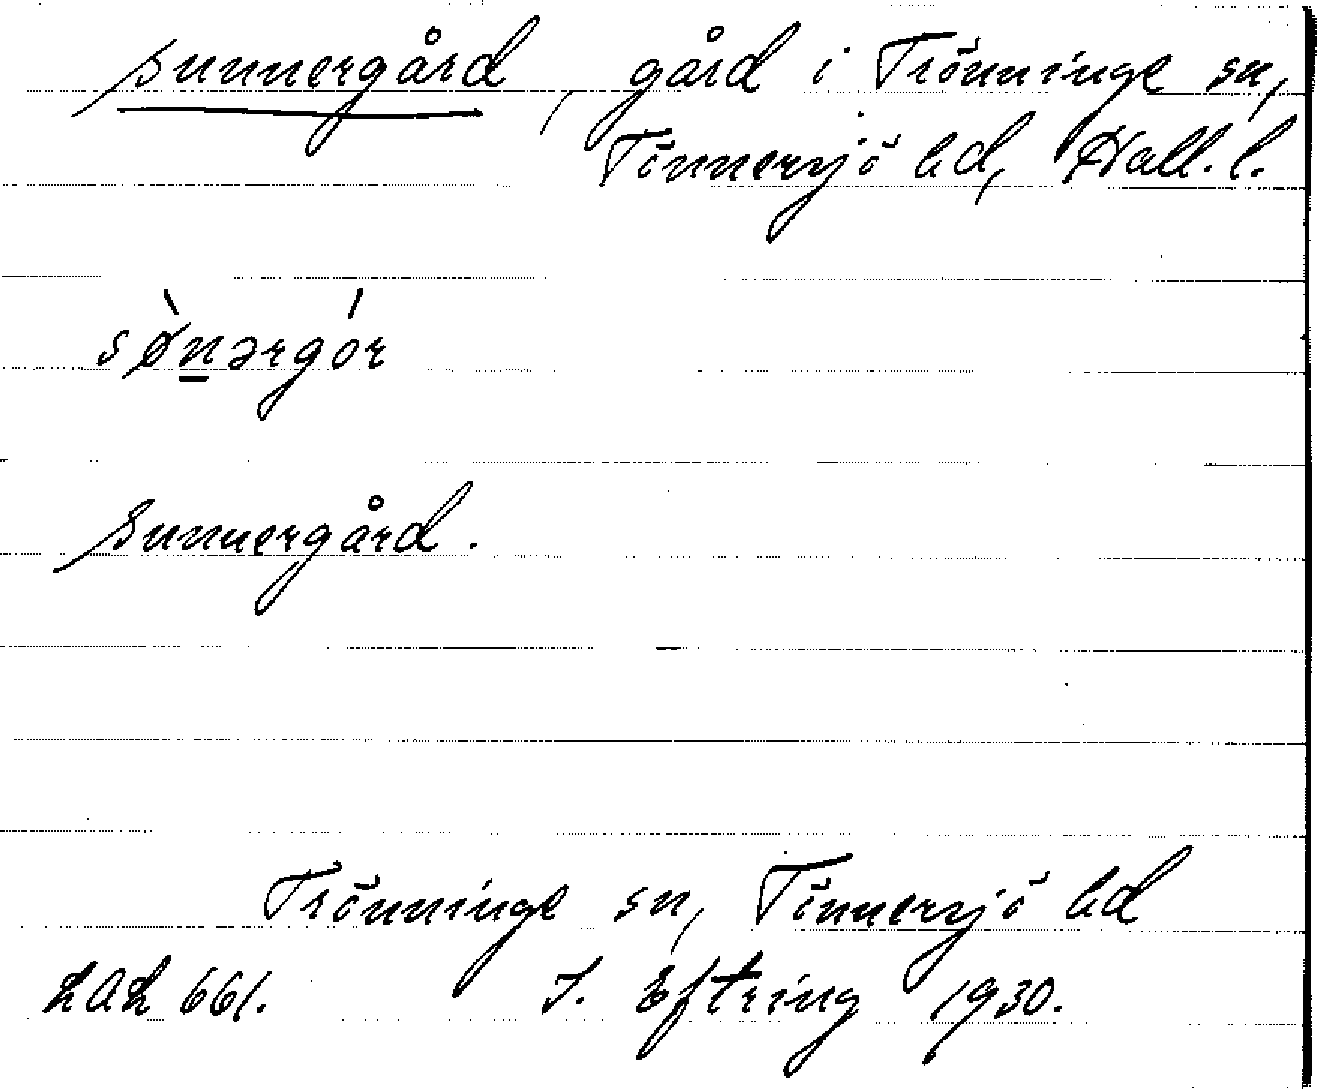 Sunnergård, gård i Trönninge sn,
Tönnersjö hd, Hall. l.
sø̀nərgór
Sunnergård.
Trönninge sn, Tönnersjö hd
LAL 661. J. Eftring 1930.